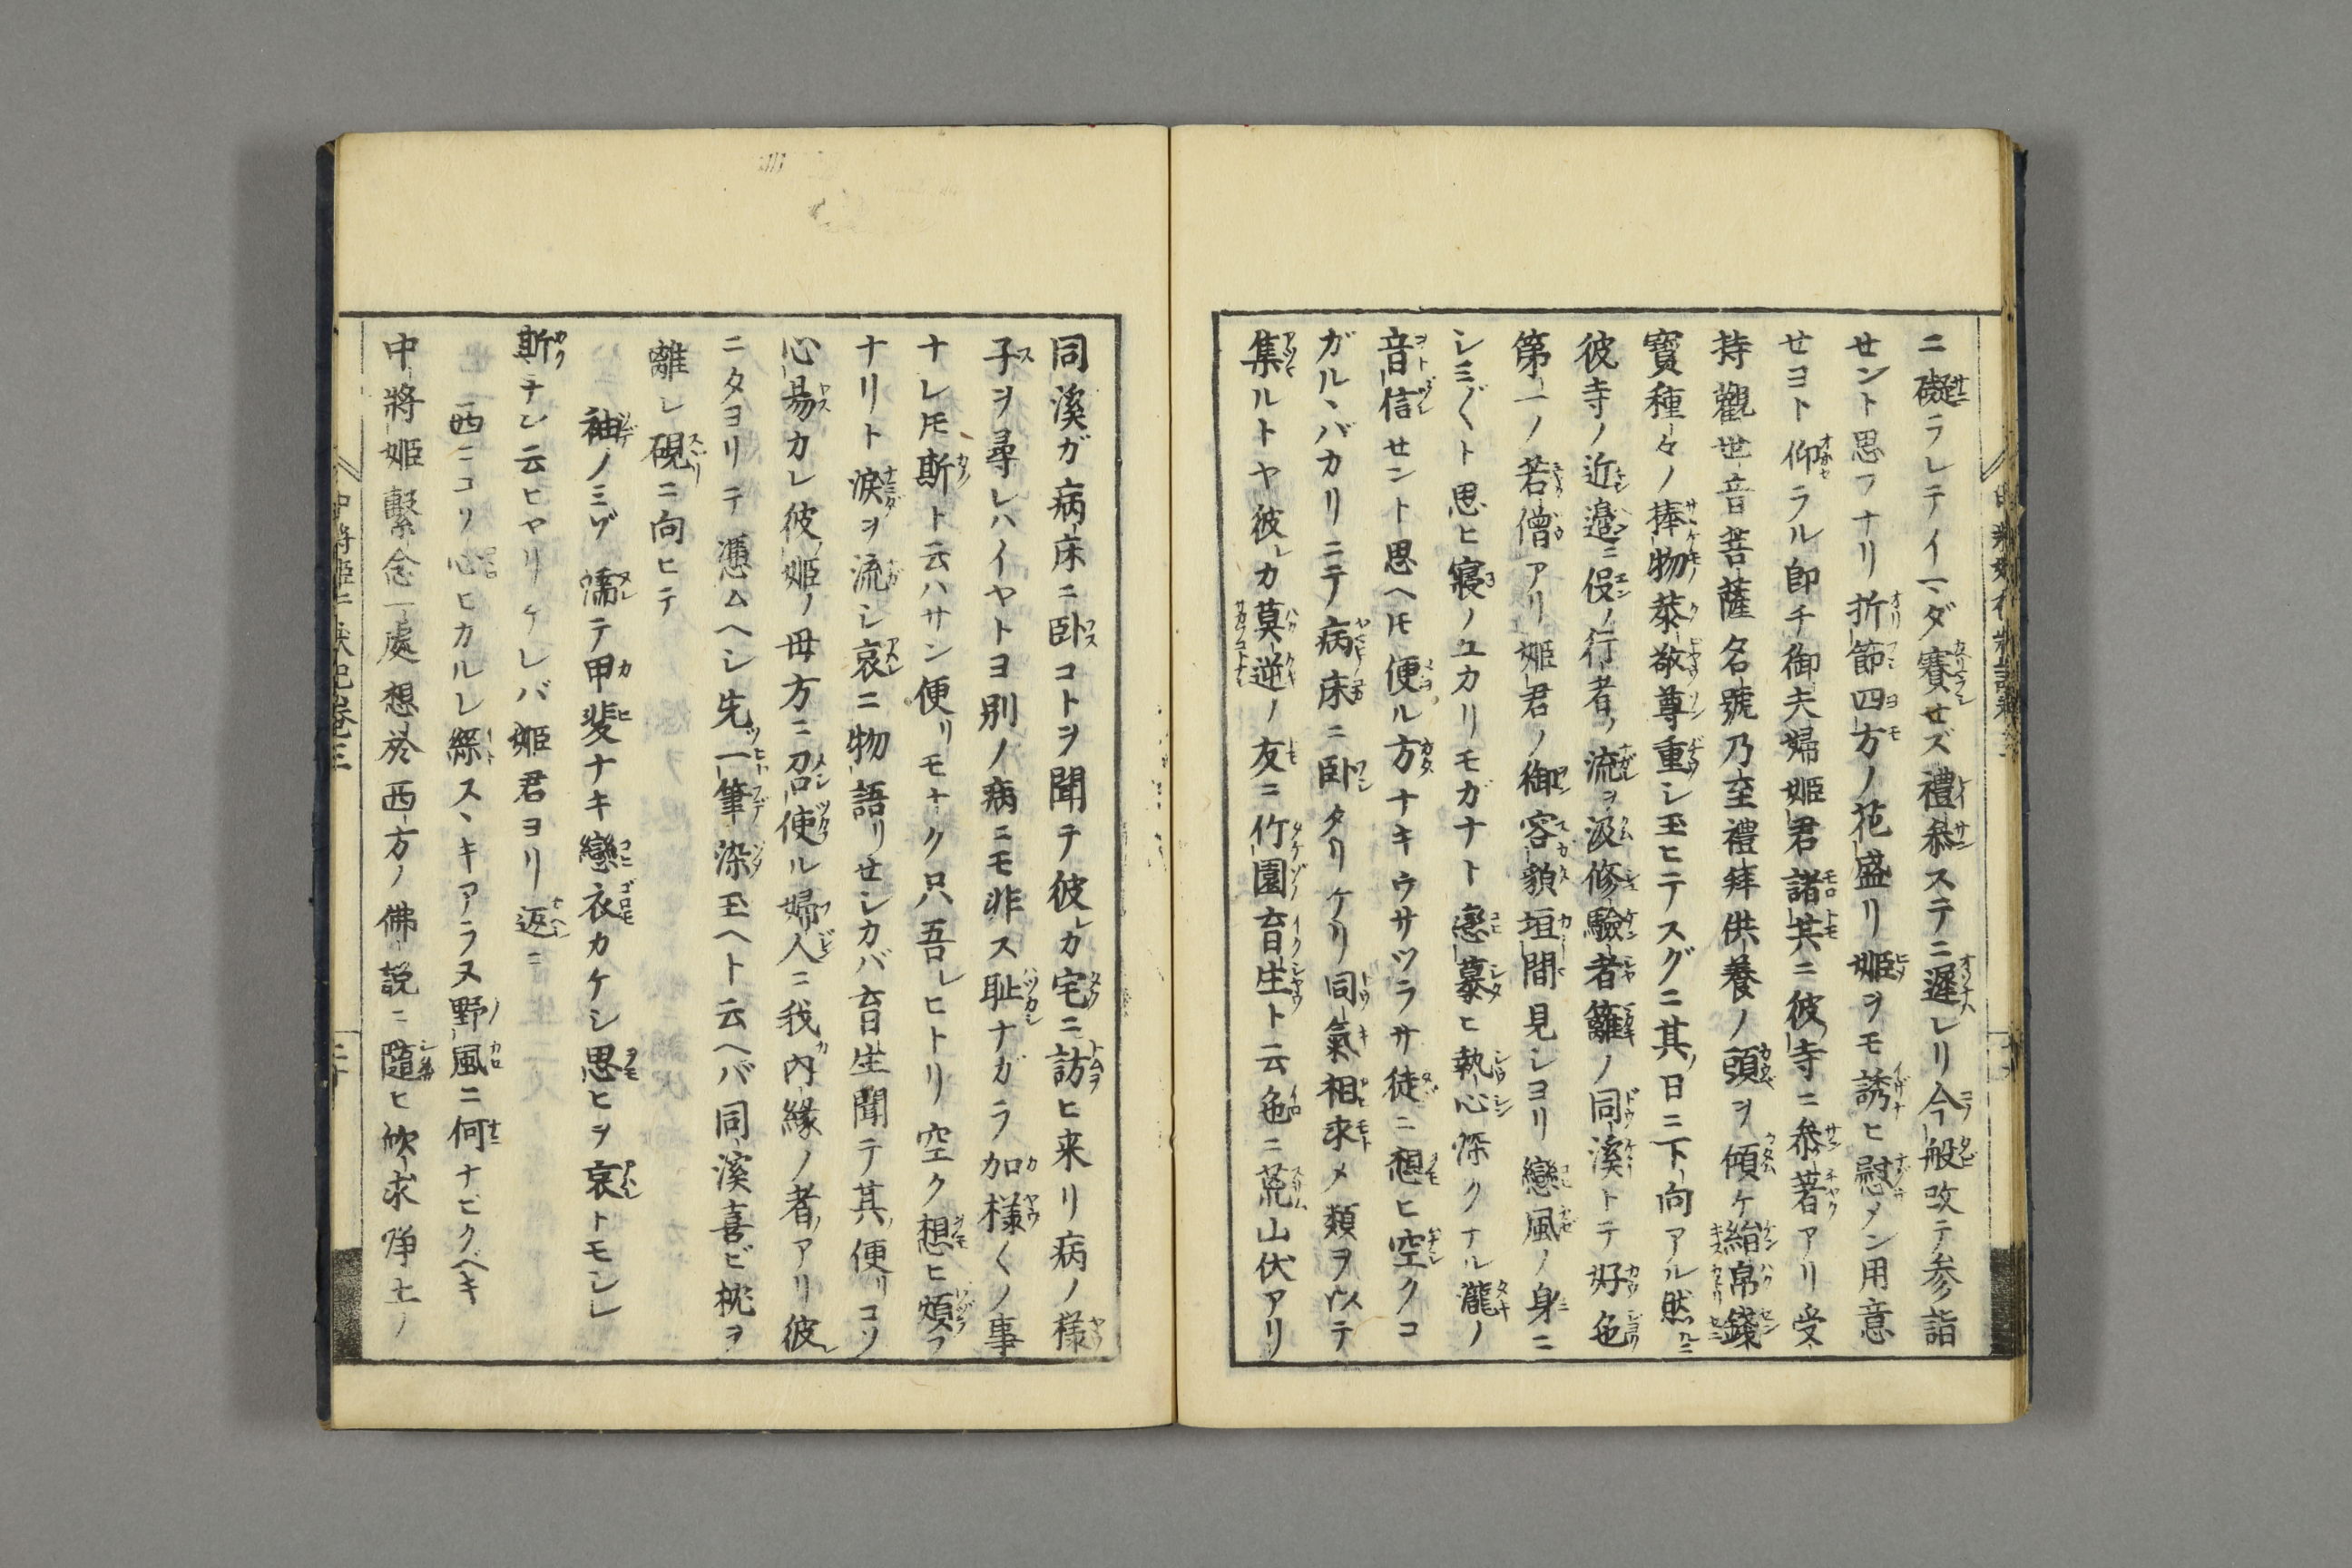 ニ礙ラレテイマダ賽セズ禮叅ステニ遲レリ今般攺テ参詣
セント思フナリ折節四方ノ花盛リ姫ヲモ誘ヒ慰メン用意
セヨト仰ラル即チ御夫婦姫君諸共ニ彼寺ニ叅著アリ受
持觀世音菩薩名號乃至禮拜供養ノ頭ヲ傾ケ絹帛錢
寳種々ノ捧物恭敬尊重シ玉ヒテスグニ其ノ日ニ下向アル然ルニ
彼寺ノ近邉ニ役ノ行者ノ流ヲ汲修驗者籬ノ同溪トテ好色
第一ノ若僧アリ姫君ノ御容貌垣間見シヨリ戀風ノ身ニ
シミ〴〵ト思ヒ寝ノユカリモガナト戀慕ヒ執心深クナル瀧ノ
音信セント思ヘ𪜈便ル方ナキウサツラサ徒ニ想ヒ空クコ
ガルヽバカリニテ病床ニ卧タリケリ同氣相求メ類ヲ以テ
集ルトヤ彼レカ莫逆ノ友ニ竹園育生ト云色ニ荒山伏アリ
同溪ガ病床ニ卧コトヲ聞テ彼レカ宅ニ訪ヒ来リ病ノ様
子ヲ尋レハイヤトヨ別ノ病ニモ非ス耻ナガラ加様〱ノ事
ナレ𪜈斯ト云ハサン便リモナク只吾レヒトリ空ク想ヒ煩フ
ナリト涙ヲ流シ哀ニ物語リセシカバ育生聞テ其ノ便リコソ
心易カレ彼ノ姫ノ母方ニ召使ル婦人ニ我カ内縁ノ者アリ彼レ
ニタヨリテ憑ムヘシ先ツ一筆染玉ヘト云ヘバ同溪喜ビ枕ヲ
離レ硯ニ向ヒテ
袖ノミゾ濡テ甲斐ナキ戀衣カケシ思ヒヲ哀トモシレ
斯ナン云ヒヤリケレバ姫君ヨリ返ニ
西ニコソ心ヒカルレ綵スヽキアラヌ野風ニ何ナビクベキ
中將姫繫念一處想於西方ノ佛説ニ隨ヒ欣求淨土ノ